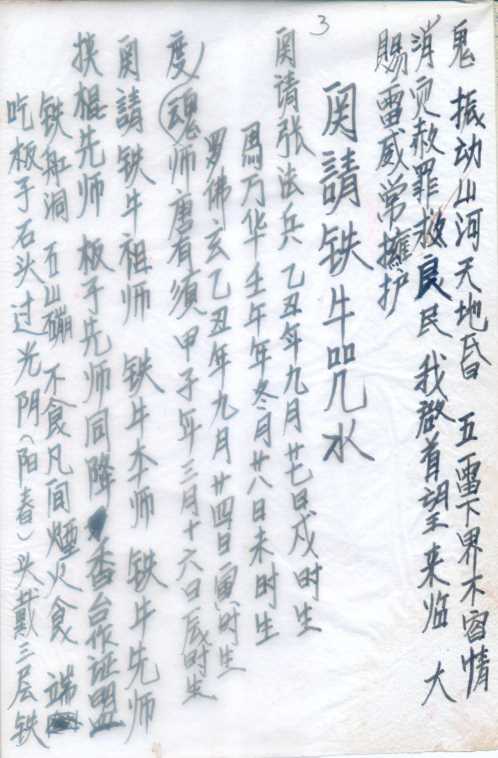 3
鬼 振动山河天地昏 五雷下界不容情
消灾赦罪救良民 我啟首望来临 大
賜雷威常擁护
関請铁牛咒水
関请张法兵 乙丑年九月廿七日戌时生
馬万华壬午年冬月廿八日未时生
罗佛玄乙丑年九月廿四日寅时生
度(魂)师唐有须甲子年三月十六日辰时生
関請铁牛祖师 铁牛本师 铁牛先师
挟棍先师 板子先师同降 香台作证盟
铁船洞 五山硼 不食凡间煙火食 端
吃板子石头过光阴(阳春)头戴三层铁